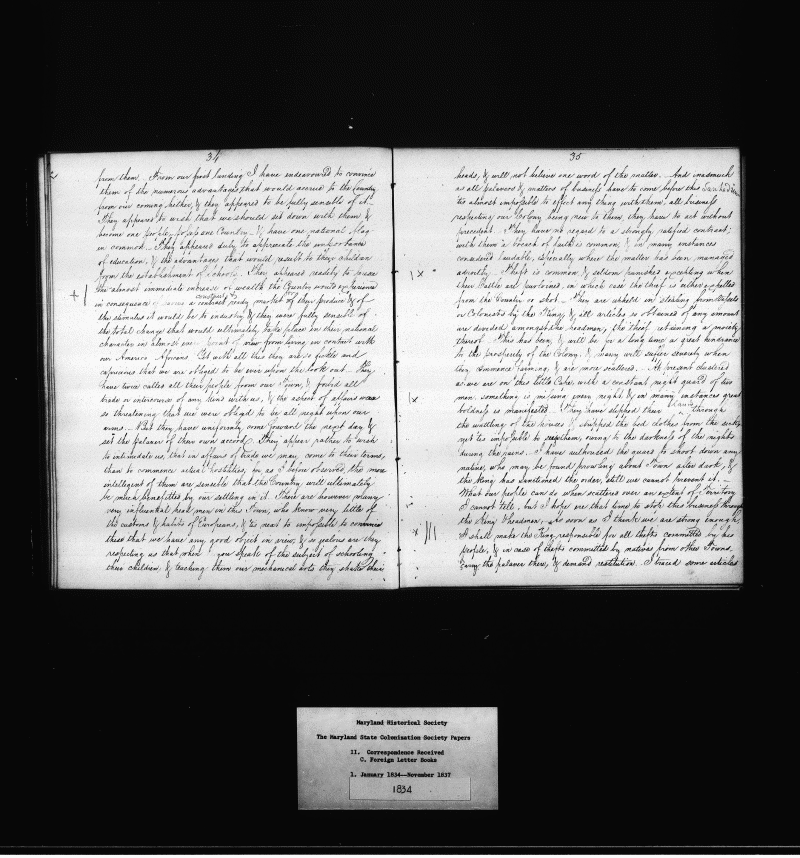 34
from them. From our first landing I have endeavored to convince
them of the numerous advantages that would accrue to the Country
from our coming hither, & they appeared to be fully sensible of it.
They appeared to wish that we should set down with them &
become one people, for one Country, & have one national flag
in common. They appeared duly to appreciate the importance
of education, & the advantages that would result to their children
from the establishment of schools. They appeared readily to
the almost immediate increase of wealth the Country would experience
in consequence of constant ready market of their produce & of
the stimulus it would be to industry & they were fully sensible of
the total change that would ultimately take place in their national
character in almost every point of view from living in contact with
our Americo Africans. Yet with all this they are so fickle and
capricious that we are obliged to be ever upon the look out. They
have twice called all their people from our Town, & forbid all
trade or intercourse of any kind with us, & the aspect of affairs was
so threatening that we were obliged to be all night upon our
arms. But they have uniformly come forward the next day &
set the palaver of their own accord. They appear rather to wish
to intimidate us, that in affairs of trade we may come to their terms,
than to commence actual hostilities, for as I before observed, the more
intelligent of them are sensible that the Country will ultimately
be much benefitted by our settling on it. There are however many
very influential head men in this Town, who know very little of
the customs & habits of Europeans, & tis next to impossible to convince
these that we have any good object in view, & so jealous are they
respecting us that when you speak of the subject of schooling
their children, & teaching them our mechanical arts they shake their
35
heads, & will not believe one word of the matter. And inasmuch
as all palavers & matters of business have to come before this Sanhedrim
tis almost impossible to effect any thing with them, all business
respecting our Colony being new to them, they have to act without
precedent. They have no regard to a strongly ratified contract;
with them a breach of faith is common, & in many instances
considered laudable, especially where the matter has been managed
adroitly. Theft is common & seldom punished excepting when
their Cattle are purloined, in which case the thief is either expelled
from the Country or shot. They are upheld in stealing from
or Colonists by the King, & all articles so obtained of any amount
are divided amongst the headmen, the thief retaining a moiety
thereof. This has been, & will be for a long time a great hindrance
to the prosperity of the Colony, & many will suffer severely when
they commence farming, & are more scattered. At present clustered
as we are on this little Cape with a constant night guard of two
men something is missing every night & in many instances great
boldness is manifested. They have slipped their hands through
the wattling of the houses & stripped the bed clothes from the
yet tis impossible to them, owing to the darkness of the nights
during the rains. I have authorised the guard to shoot down any
native, who may be found prowling about Town after dark, &
the King has sanctioned the order, still we cannot prevent it.
What our people can do when scattered over an extent of Territory
I cannot tell, but I hope ere that time to stop this business through
the King & headmen. As soon as I think we are strong enough,
I shall make the King responsible for all thefts committed by his
people, & in case of thefts committed by natives from other Towns
carry the palaver there, & demand restitution. I traced some articles
Maryland Historical Society
The Maryland State Colonization Society Papers
II. Correspondence Received
C. Foreign Letter Books
1. January 1834--November 1837
1834